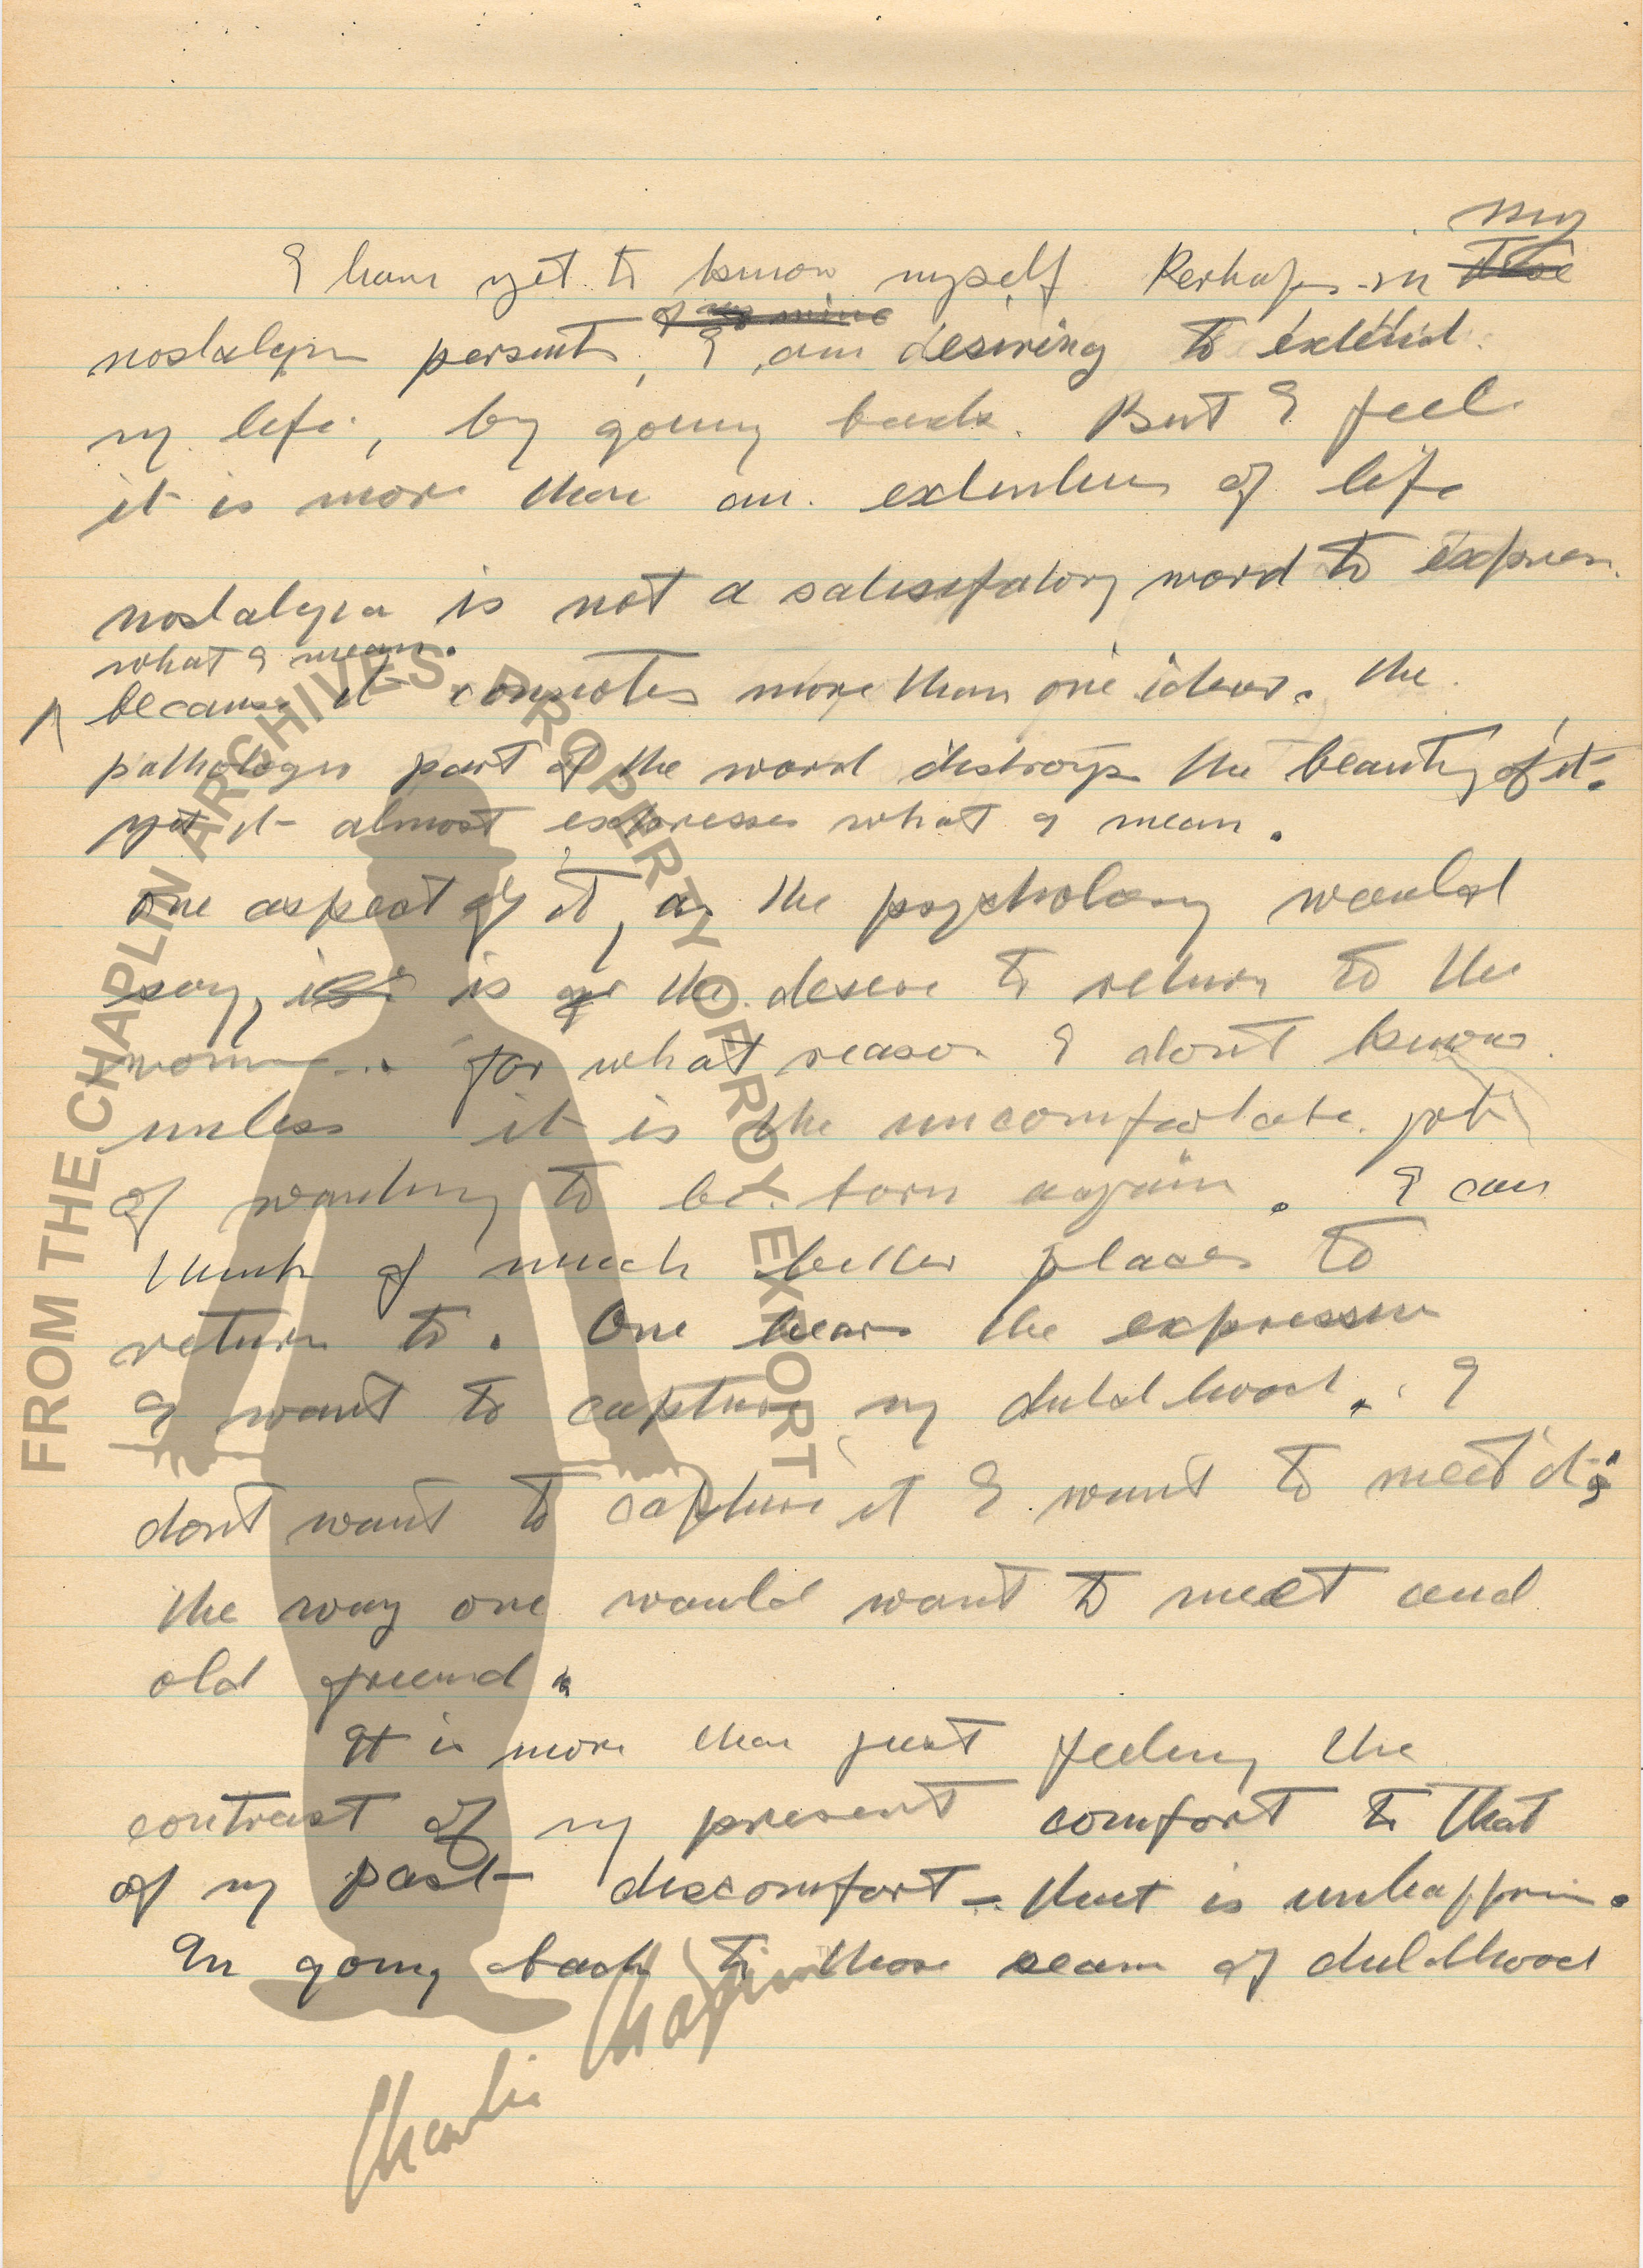 my
I have yet to know myself. Perhaps in these
of mine
nostalgia , I am desiring to extend
my life, by going back. But I feel
it is more than an extention of life
nostalgia is not a satisfatory word to express
what I mean.
because it connotes more than one ideas. the
pathologic part of the word distroys the beauty of it.
yet it almost expresses what I mean.
one aspect of it, as the psychology would
say, is the desire to return to the
womb. for what reason I don't know
unless it is the uncomfortable job
of wanting to be born again. I can
think of much better places to
return to. One hears the expression
I want to capture my childhood. I
dont want to capture it I want to meet it;
the way one would want to meet and
old friend.
It is more than just feeling the
contrast of my present comfort to that
of my past discomfort - that is unhappiness.
In going back to those of childhood
FROM THE CHAPLIN ARCHIVES. PROPERTY OF ROY EXPORT
Charlie Chaplin